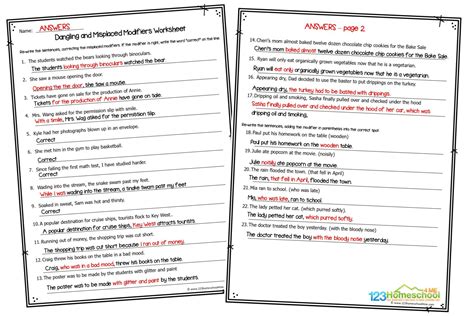 Name: ANSWERS
Dangling and Misplaced Modifiers Worksheet
Rewrite the sentences, correcting the misplaced modifiers. If the modifier is right, write the word "correct" on the line.
1. The students watched the bears looking through binoculars.
The students looking through binoculars watched the bears.
2. She saw a mouse opening the door.
Opening the door, she saw a mouse.
3. Tickets have gone on sale for the production of Annie.
Tickets for the production of Annie have gone on sale.
4. Mrs. Wang asked for the permission slip with smile.
With a smile, Mrs. Wag asked for the permission slip.
5. Kyle had her photographs blown up in an envelope.
Correct
6. She met him in the gym to play basketball.
Correct
7. Since failing the first math test, I have studied harder.
Correct
8. Wading into the stream, the snake swam past my feet.
While I was wading into the stream, a snake swam past my feet.
9. Soaked in sweat, Sam was hot and thirsty.
Correct
10. A popular destination for cruise ships, tourists flock to Key West.
A popular destination for cruise ships, Key West attracts tourists.
11. Running out of money, the shopping trip was cut short.
The shopping trip was cut short because I ran out of money.
12. Craig threw his books on the table in a bad mood.
Craig, who was in a bad mood, threw his books on the table.
13. The poster was to be made by the students with glitter and paint.
The poster was to be made with glitter and paint by the students.
ANSWERS - page 2
14. Cheri's mom baked almost twelve dozen chocolate chip cookies for the Bake Sale.
Cheri's mom baked almost twelve dozen chocolate chip cookies for the Bake Sale
15. Ryan will only eat organically grown vegetables now that he is a vegetarian.
Ryan will eat only organically grown vegetables now that he is a vegetarian.
16. Appearing dry, Dad decided to use the turkey to be basted with drippings.
Appearing dry, the turkey had to be basted with drippings.
17. Dripping oil and smoking, Sasha finally pulled over and checked under the hood
Sasha finally pulled over and checked under the hood of her car, which was
dripping oil and smoking.
Rewrite the sentences, adding the modifier in parentheses into the correct spot.
18. Paul put his homework on the table. (wooden)
Paul put his homework on the wooden table.
19. Julie ate popcorn at the movie. (noisily)
Julie noisily ate popcorn at the movie.
20. The rain flooded the town. (that fell in April)
The rain, that fell in April, flooded the town.
21. Mia ran to school. (who was late)
Mia, who was late, ran to school.
22. The lady petted her cat. (which purred softly)
The lady petted her cat, which purred softly.
23. The doctor treated the boy (with the bloody nose yesterday)
The doctor treated the boy with the bloody nose yesterday.
123Homeschool 4 ME